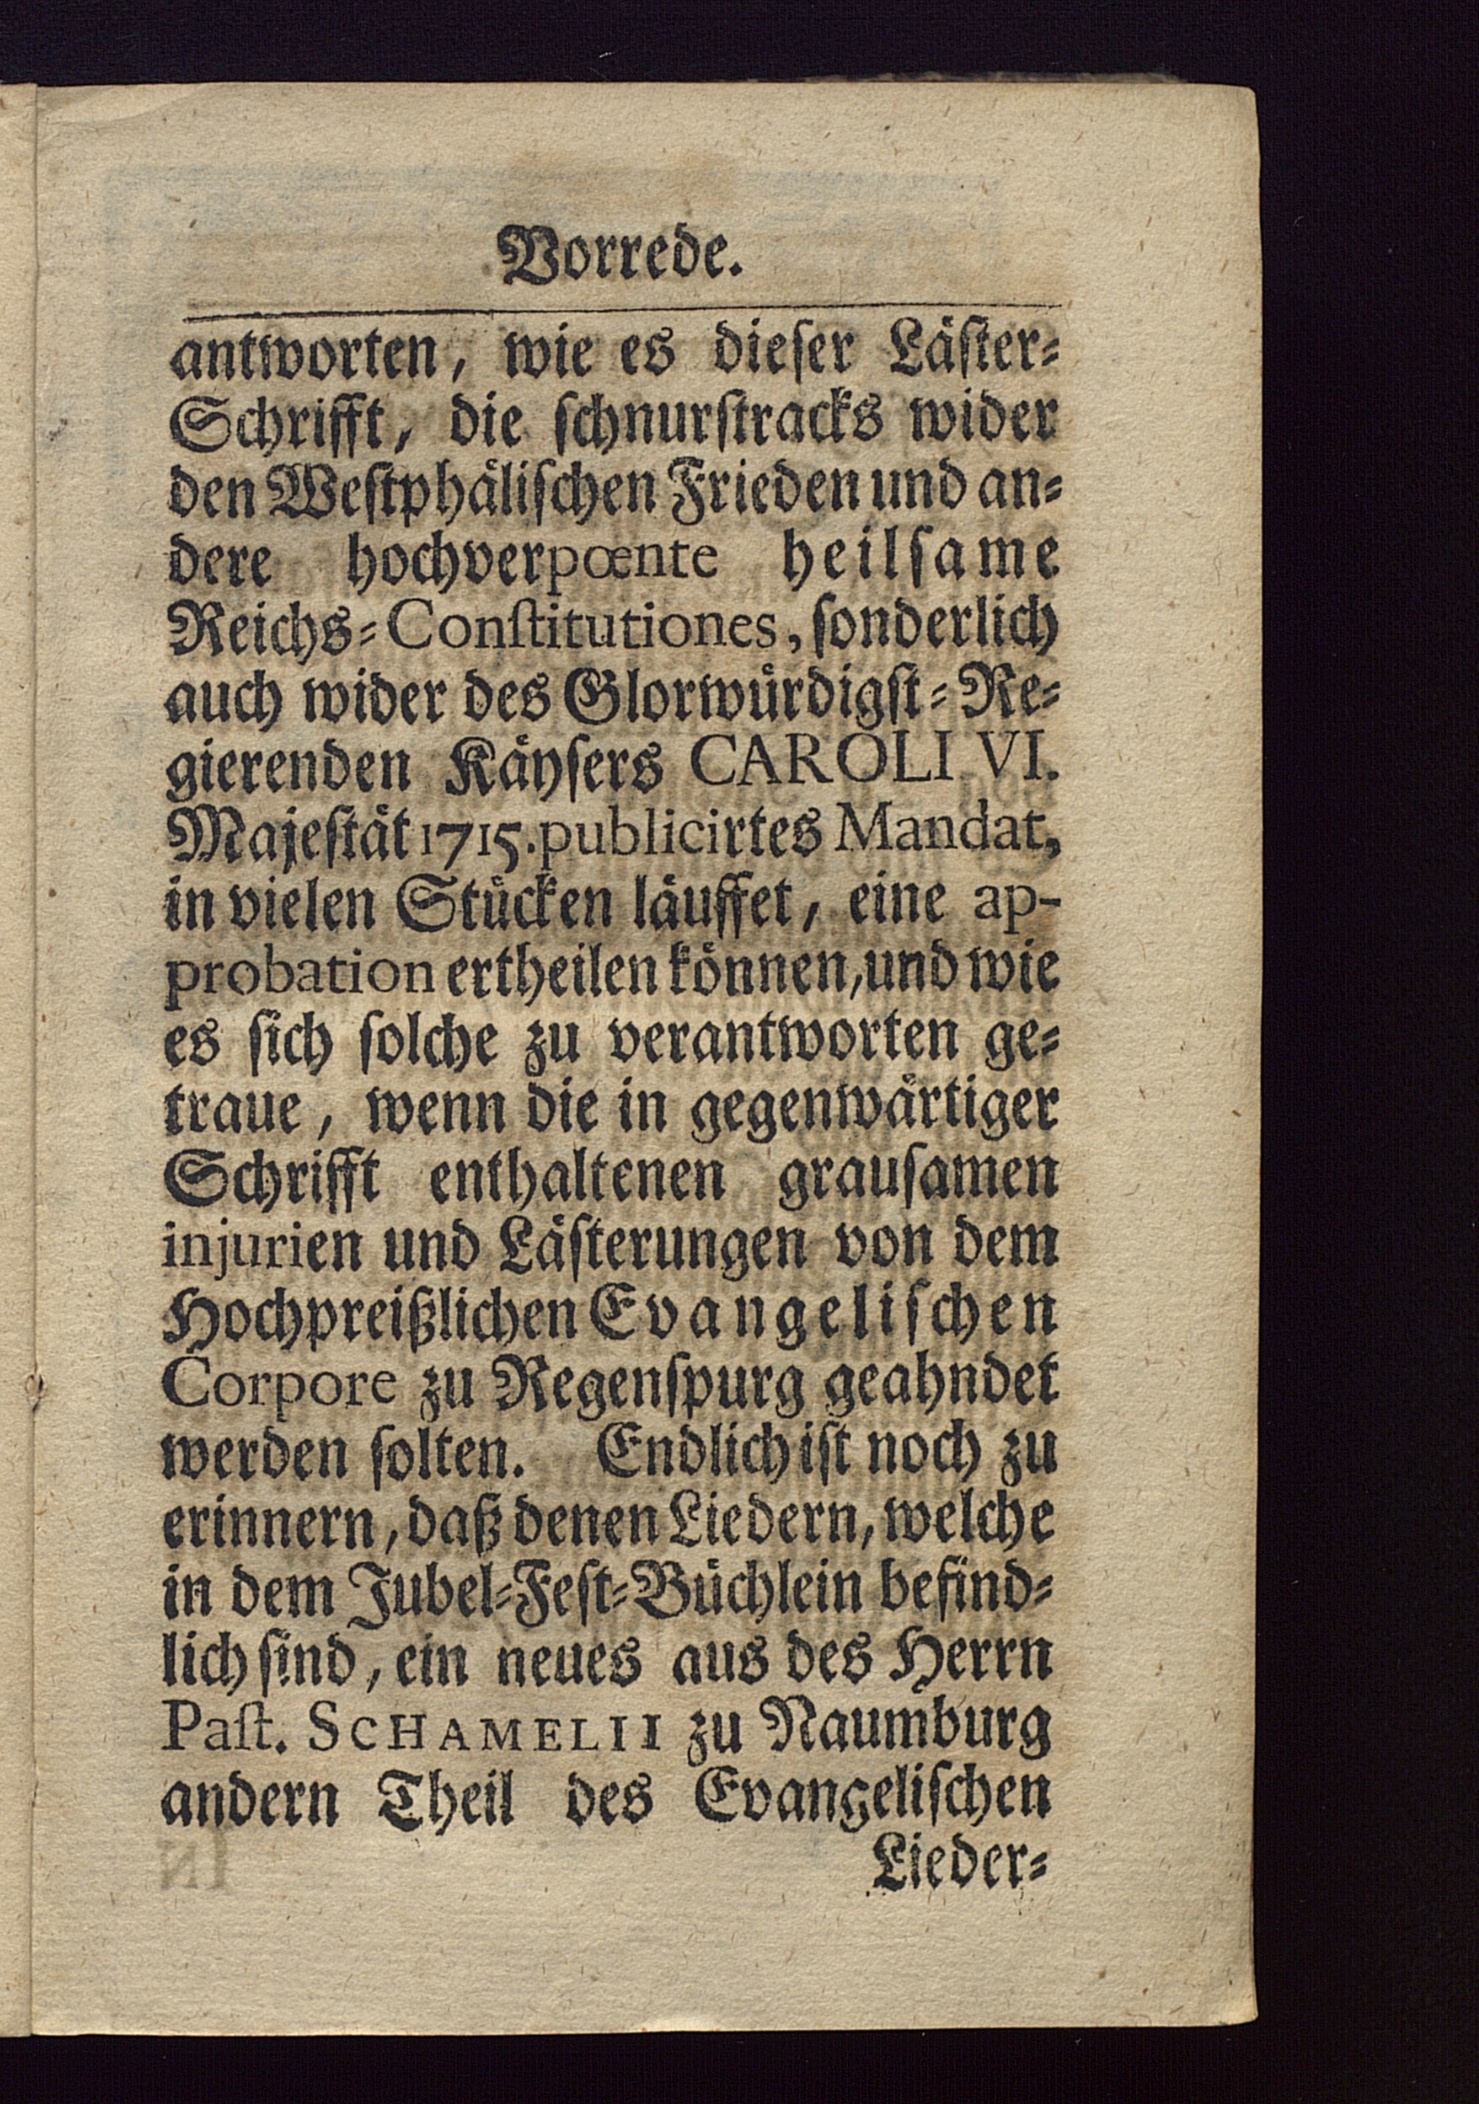 Vorrede.
antworten, wie es dieſer Läſter⸗
Schrifft, die ſchnurſtracks wider
den Weſtphäliſchen Frieden und an⸗
dere hochverpœnte heilſame
Reichs⸗Conſtitutiones, ſonderlich
auch wider des Glorwürdigſt⸗Re⸗
gierenden Käyſers CAROLI VI.
Majeſtät 1715. publicirtes Mandat,
in vielen Stücken läuffet, eine ap-
probation ertheilen können, und wie
es ſich ſolche zu verantworten ge⸗
traue, wenn die in gegenwärtiger
Schrifft enthaltenen grauſamen
injurien und Läſterungen von dem
Hochpreißlichen Evangeliſchen
Corpore zu Regenſpurg geahndet
werden ſolten. Endlich iſt noch zu
erinnern, daß denen Liedern, welche
in dem Jubel⸗Feſt⸗Büchlein befind⸗
lich ſind, ein neues aus des Herrn
Paſt. SCHAMELII zu Naumburg
andern Theil des Evangeliſchen
Lieder⸗